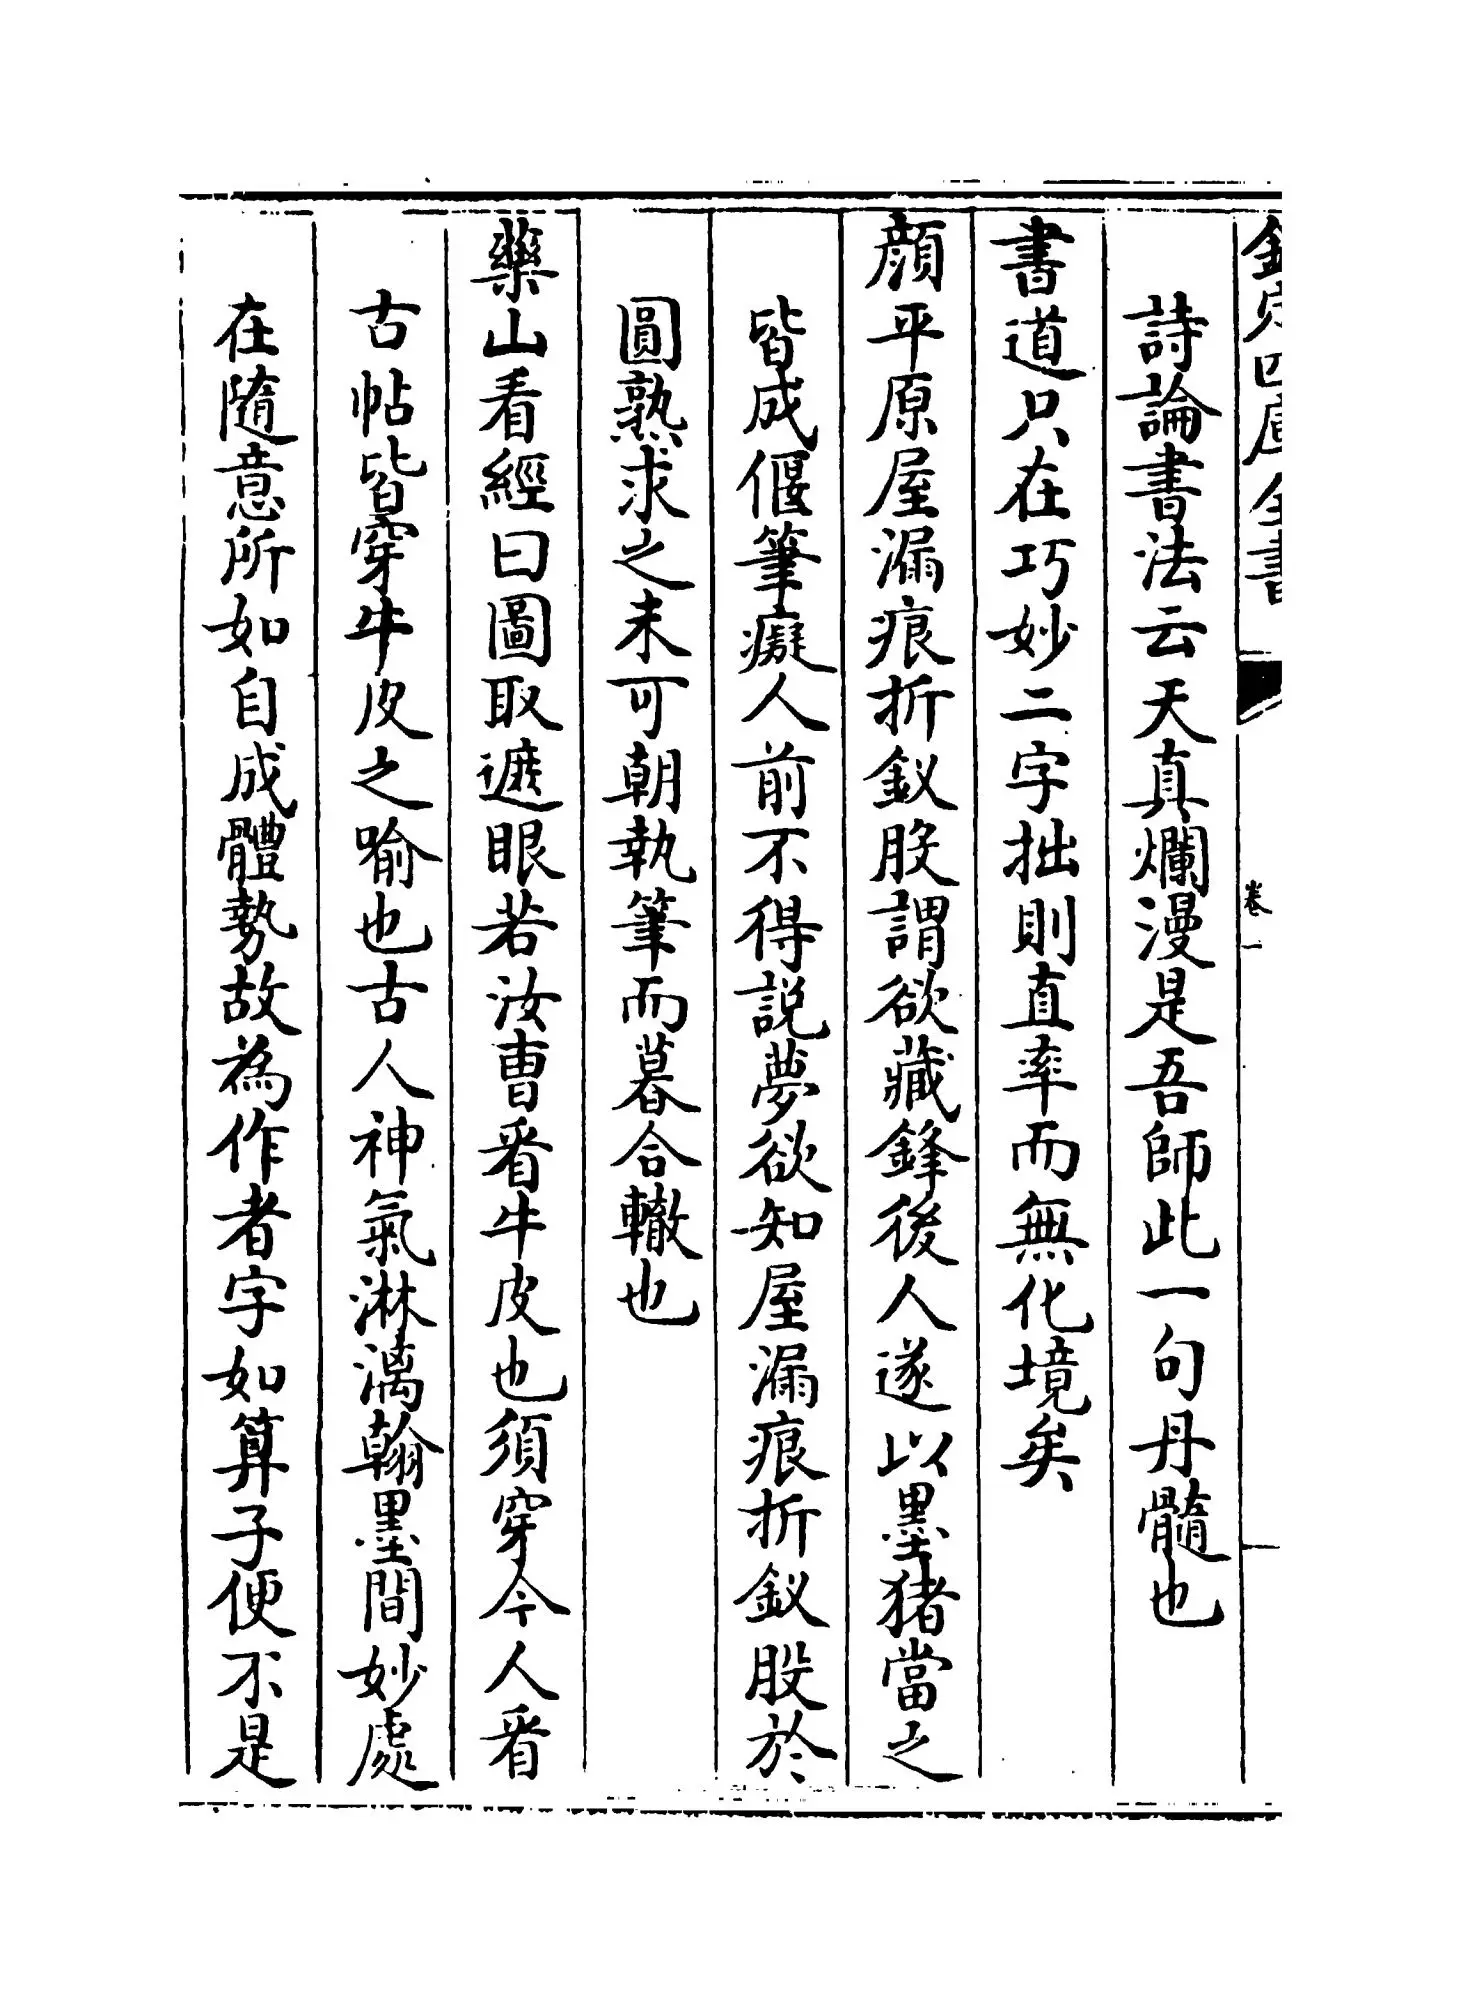 欽定四庫全書
卷一
詩論書法云天真爛漫是吾師此一句丹髓也
書道只在巧妙二字拙則直率而無化境矣
顔平原屋漏痕折釵股謂欲藏鋒後人遂以墨猪當之
皆成偃筆癡人前不得説夢欲知屋漏痕折釵股於
圓熟求之未可朝執筆而暮合轍也
藥山看經曰圖取遮眼若汝曹看牛皮也須穿今人看
古帖皆穿牛皮之喻也古人神氣淋漓翰墨間妙處
在隨意所如自成體勢故為作者字如算子便不是